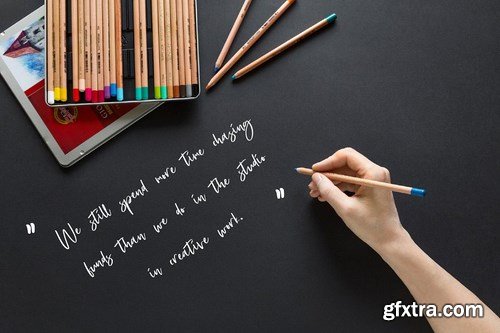 " We still spend more time chasing
funds than we do in the studio
in creative work. "
gfxtra.com